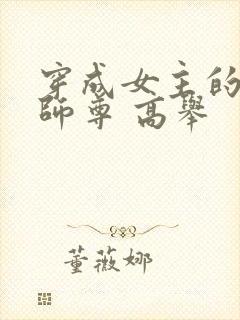 穿成女主的
師尊 高舉
董薇娜